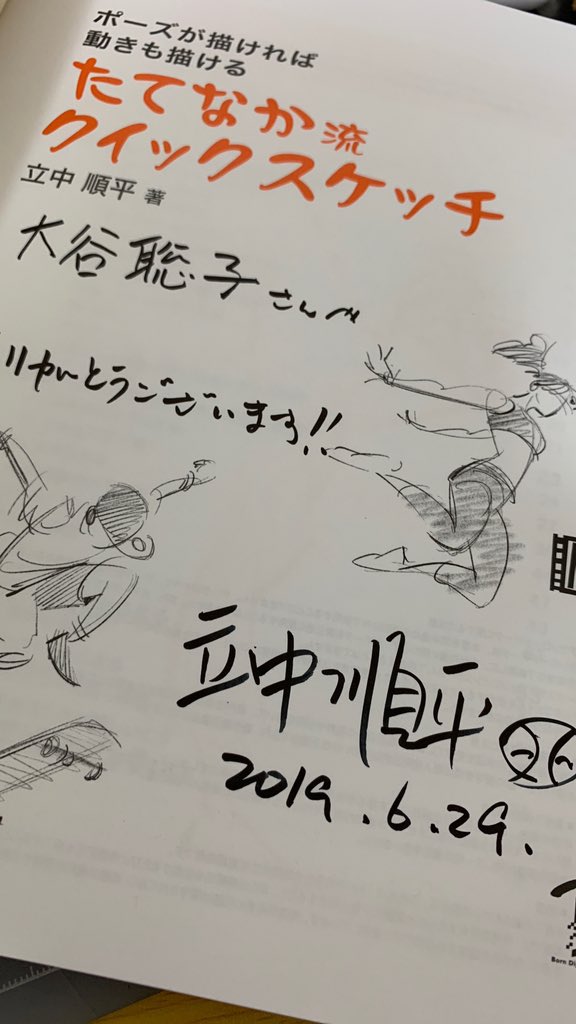 ポーズが描ければ
動きも描ける
たてなか流
クイックスケッチ
立中 順平 著
大谷聡子さんへ
りがとうございます!!
立中順平
2019.6.29.
Born Di